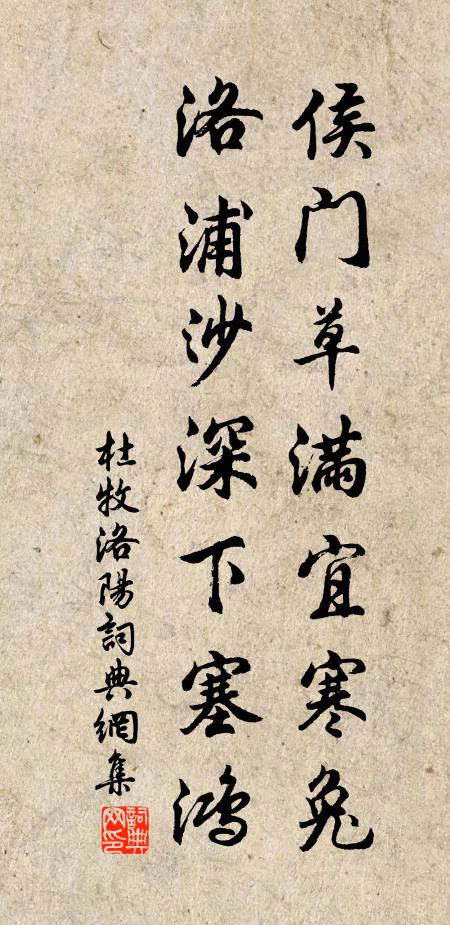 侯门草满宜寒兔
洛浦沙深下塞鸿
杜牧洛陽詞典網集
詞典网印